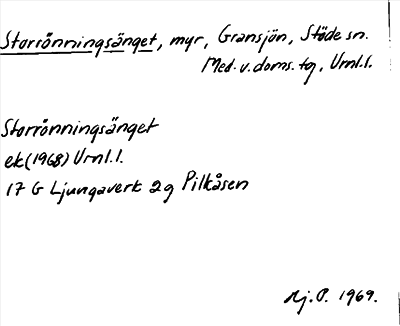 Storrönningsänget, myr, Gransjön, Stöde sn.
Med. v. doms. tg, Vrnl.l.
Storrönningsänget
ek (1968) Vrnl.l.
17 G Ljungaverk 2g Pilkåsen
Nj.P. 1969.